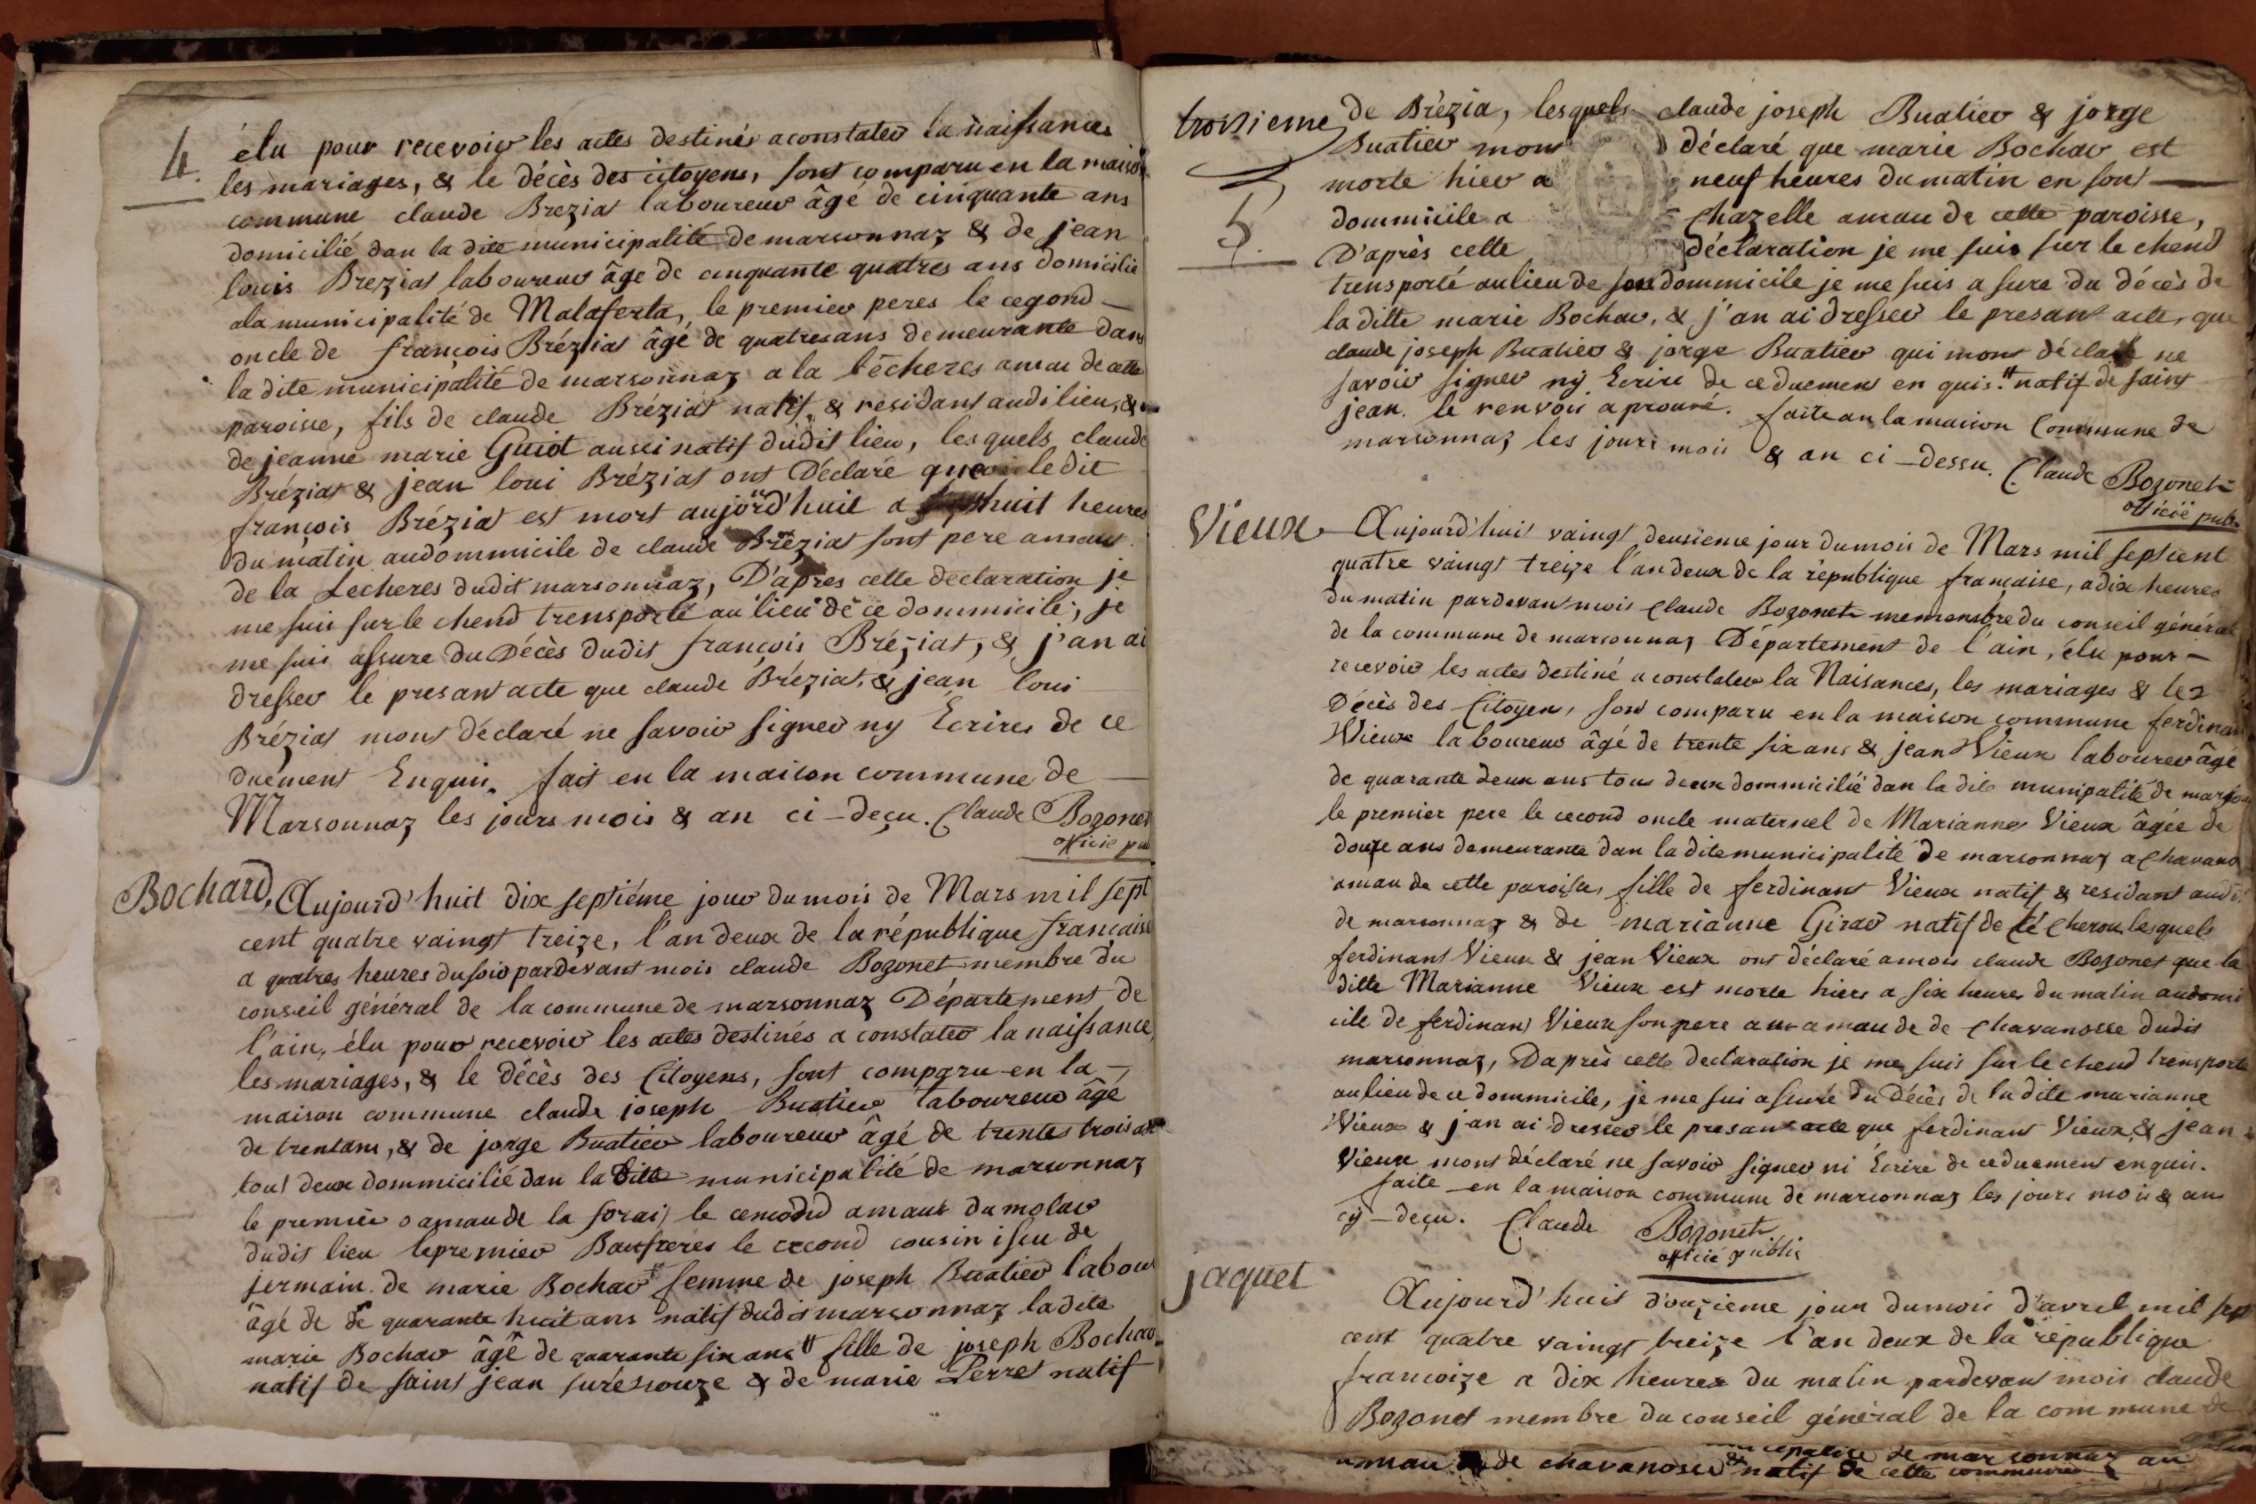 4.
élu pour recevoir les actes destinés a constater la naissances
les mariages, & le décès des citoyens, sont comparu en la maison
commune claude Breziat laboureur âgé de cinquante ans
domicilié dan la dite municipalité de marsonnaz & de jean
louis Breziat laboureur âge de cinquante quatres ans domicilié
ala municipalité de Malaferta, le premier peres le cegond —
oncle de françois Bréziat âgé de quatres ans demeurante dans
la dite municipalité de marsonnaz a la lècheres amau de cette
paroisse, fils de claude Bréziat natif & residant audi lieu, &
de jeanne marie Guiot aussi natif dudit lieu, lesquels claude
Bréziat & jean loui Bréziat ont Déclaré que le dit
françois Bréziat est mort aujord'huit a huit heures
du matin audommicile de claude Bréziat sont pere amau
de la Lecheres dudit marsonnaz, D'apres cette declaration je
me suis sur le chend trensporté au lieu de ce dommicile, je
me suis assure du Décès dudit françois Bréziat, & j'an ai
dresser le presant acte que claude Bréziat, & jean loui
Bréziat mont déclaré ne savoir signer ny Ecrires de ce
duement Enquis. fait en la maison commune de —
Marsonnaz les jours mois & an ci-deçu. Claude Bozonet
officié pub
Bochard, Aujourd'huit dix septiéme jour du mois de Mars mil sept
cent quatre vaingt treize, l'an deux de la république français
a quatres heures du soir pardevant mois claude Bozonet membre du
conseil général de la commune de marsonnaz Département de
l'ain, élu pour recevoir les actes destinés a constater la naissance,
les mariages, & le décès des Citoyens, sont comparu en la —
maison commune claude joseph Buatier laboureur âgé
de trentans, & de jorge Buatier laboureur âgé de trentes trois an
tout deux dommicilié dan la ditte municipalité de marsonnaz
le premier o amau de la forai, le cemodd amaut du molar
dudit lieu le premier Baufreres le cecond cousin isu de
jermain de marie Bochar femme de joseph Buatier labour
âgé de de quarante huit ans natif dudit marsonnaz la dite
marie Bochar âgê de quarante six ans fille de joseph Bochar
natif de saint jean suréssouze & de marie Perret natif
troizieme
5.
de Brézia, lesquels claude joseph Buatier & jorge
Buatier mont déclaré que marie Bochar est
morte hier a neuf heures du matin en sont —
dommicile a Chazelle amau de cette paroisse,
D'après cette déclaration je me suis sur le chend
trensporté au lieu de son dommicile je me suis a sure du décès de
la ditte marie Bochar, & j'an ai dresser le presant acte, que
claude joseph Buatier & jorge Buatier qui mont déclaré ne
savoir signer ny Ecrire de ce duement en quis. # natif de saint
jean. le renvoi a prouvé. faite an la maison Commune de
marsonnaz les jours mois & an ci-dessu. Claude Bozonet
officié pub
Vieux Aujourd'hui vaingt deusieme jour du mois de Mars mil septcent
quatre vaingt treize l'an deux de la république française, a dix heures
du matin pardevant mois Claude Bozonet memensbre du conseil général
de la commune de marsonnaz Département de l'ain, élu pour —
recevoir les actes destiné a constater la Naisances, les mariages & les
Décès des Citoyen, sont comparu en la maison commune ferdinan
Vieux laboureur âgé de trente six ans & jean Vieux laboureur âgé
de quarante deux ans tous deux dommicilié dan la dite munipalité de marson
le premier pere le cecond oncle maternel de Marianne Vieux âgée de
douze ans demeurante dan la dite municipalité de marsonnaz a Chavano
amau de cette paroise, fille de ferdinant Vieux natif & residant audi
de marsonnaz & de marianne Girar natif de lé Cheroux lesquels
ferdinant Vieux & jean Vieux ont déclaré a mois claude Bozonet que la
ditte Marianne Vieux est morte hiers a six heures du matin audomi
cile de ferdinant Vieux son pere au amau de de Chavanosse dudit
marsonnaz, Daprès cette declaration je me suis sur le chend trensporte
au lieu de ce dommicile, je me sui asuré du Décès de la dite marianne
Vieux & j'an ai dresser le presant acte que ferdinant Vieux, & jean
Vieux mont déclaré ne savoir signer ni Ecrire de ce duement enquis.
faite en la maison commune de marsonnaz les jours mois & an
cy-deçu. Claude Bozonet
officié public
jaquet
Aujourd'huit d'ouzieme jour du mois d'avrel mil sept
cent quatre vaingt treize l'an deux de la république
francoize a dix heures du matin pardevant mois claude
Bozonet membre du conseil général de la commune de
municipalité de marsonnaz au
amau de chavanosse & natif de cette commune